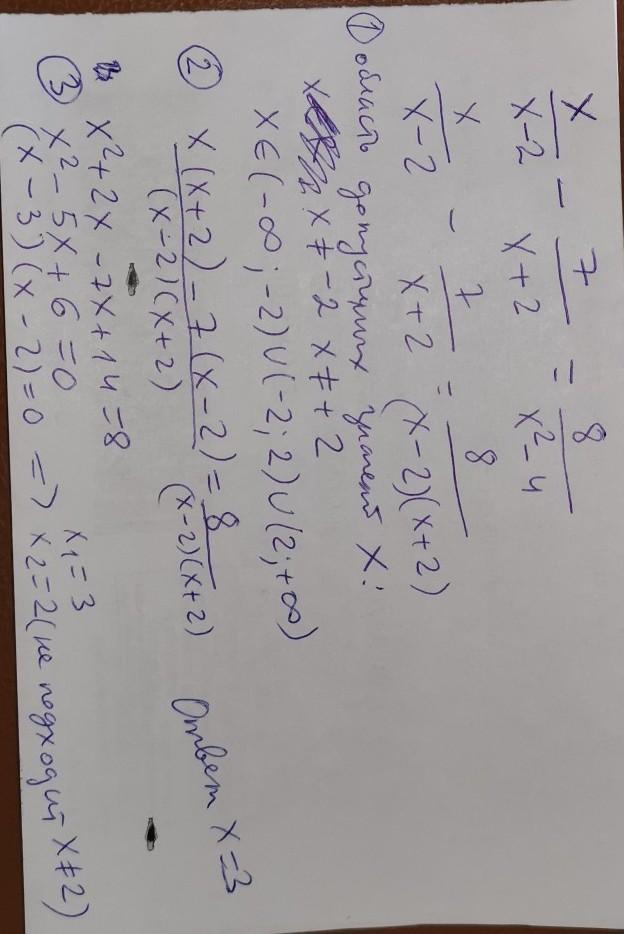 x/(x-2) - 7/(x+2) = 8/(x²-4)
x/(x-2) - 7/(x+2) = 8/((x-2)(x+2))
① область допустимых значений x:
x ≠ -2 x ≠ +2
x ∈ (-∞; -2) ∪ (-2; 2) ∪ (2; +∞)
② (x(x+2) - 7(x-2))/((x-2)(x+2)) = 8/((x-2)(x+2))
x² + 2x - 7x + 14 = 8
③ x² - 5x + 6 = 0
(x - 3)(x - 2) = 0 => x₁ = 3
x₂ = 2 (не подходит x ≠ 2)
Ответ x = 3